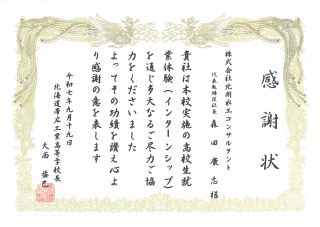 感謝状
株式会社北開水工コンサルタント
代表取締役社長 森田康志様
貴社は本校実施の高校生就
業体験(インターンシップ)
を通じ多大なるご尽力ご協
力をくださいました
よってその功績を讃え心よ
り感謝の意を表します
令和七年九月十九日
北海道帯広工業高等学校長
大西 益巳